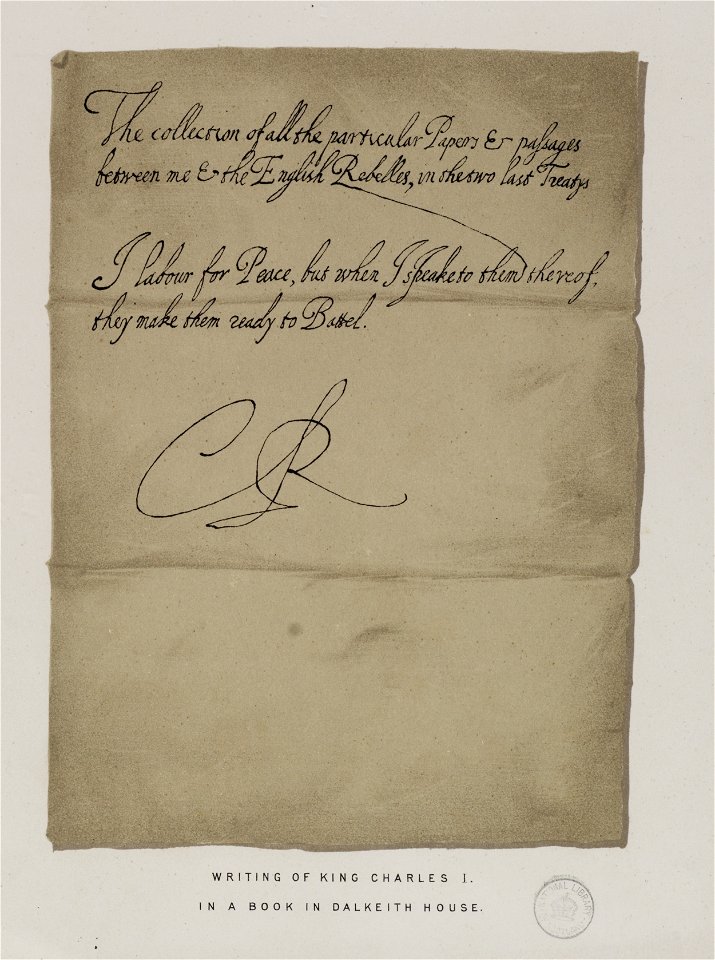 The collection of all the particular Papers & passages
between me & the English Rebelles, in the two last Treatys
I labour for Peace, but when I speake to them thereof,
they make them ready to Battel.
CR
WRITING OF KING CHARLES I.
IN A BOOK IN DALKEITH HOUSE.
NATIONAL LIBRARY